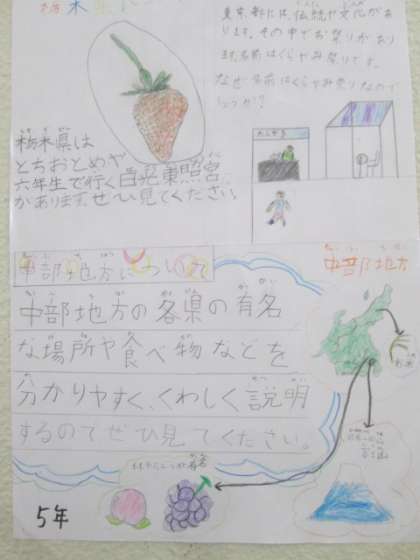 栃木
東京都には、伝統や文化があ
ります。その中でお祭りがあり
ます。名前はくらやみ祭りです。
なぜ名前はくらやみ祭りなので
しょうか!?
栃木県は
とちおとめや
六年生で行く日光東照宮
がありますぜひ見てください
中部地方について
中部地方
中部地方の各県の有名
な場所や食べ物などを
分かりやすく、くわしく説明
するのでぜひ見てください。
お米
日本一の山
富士山
有名
5年